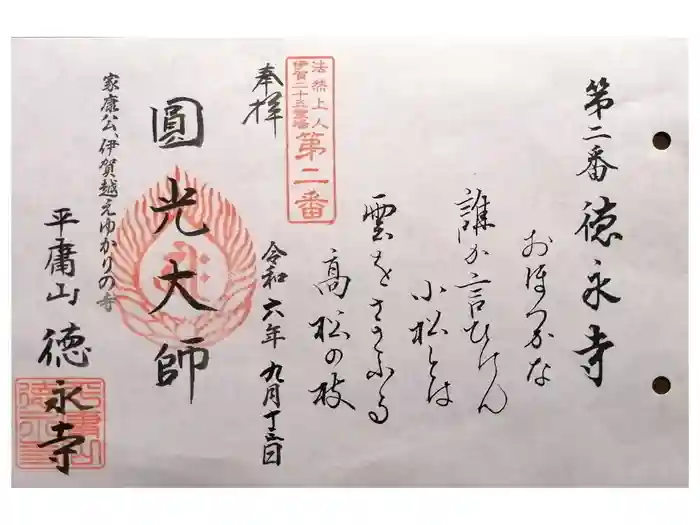 第二番 徳永寺
おほつかな
誰か言ひけん
小松とは
雲をさゝふる
高松の枝
法然上人
伊賀二十五霊場
第二番
奉拝
令和六年 九月十三日
圓光大師
家康公、伊賀越えゆかりの寺
平庸山 徳永寺